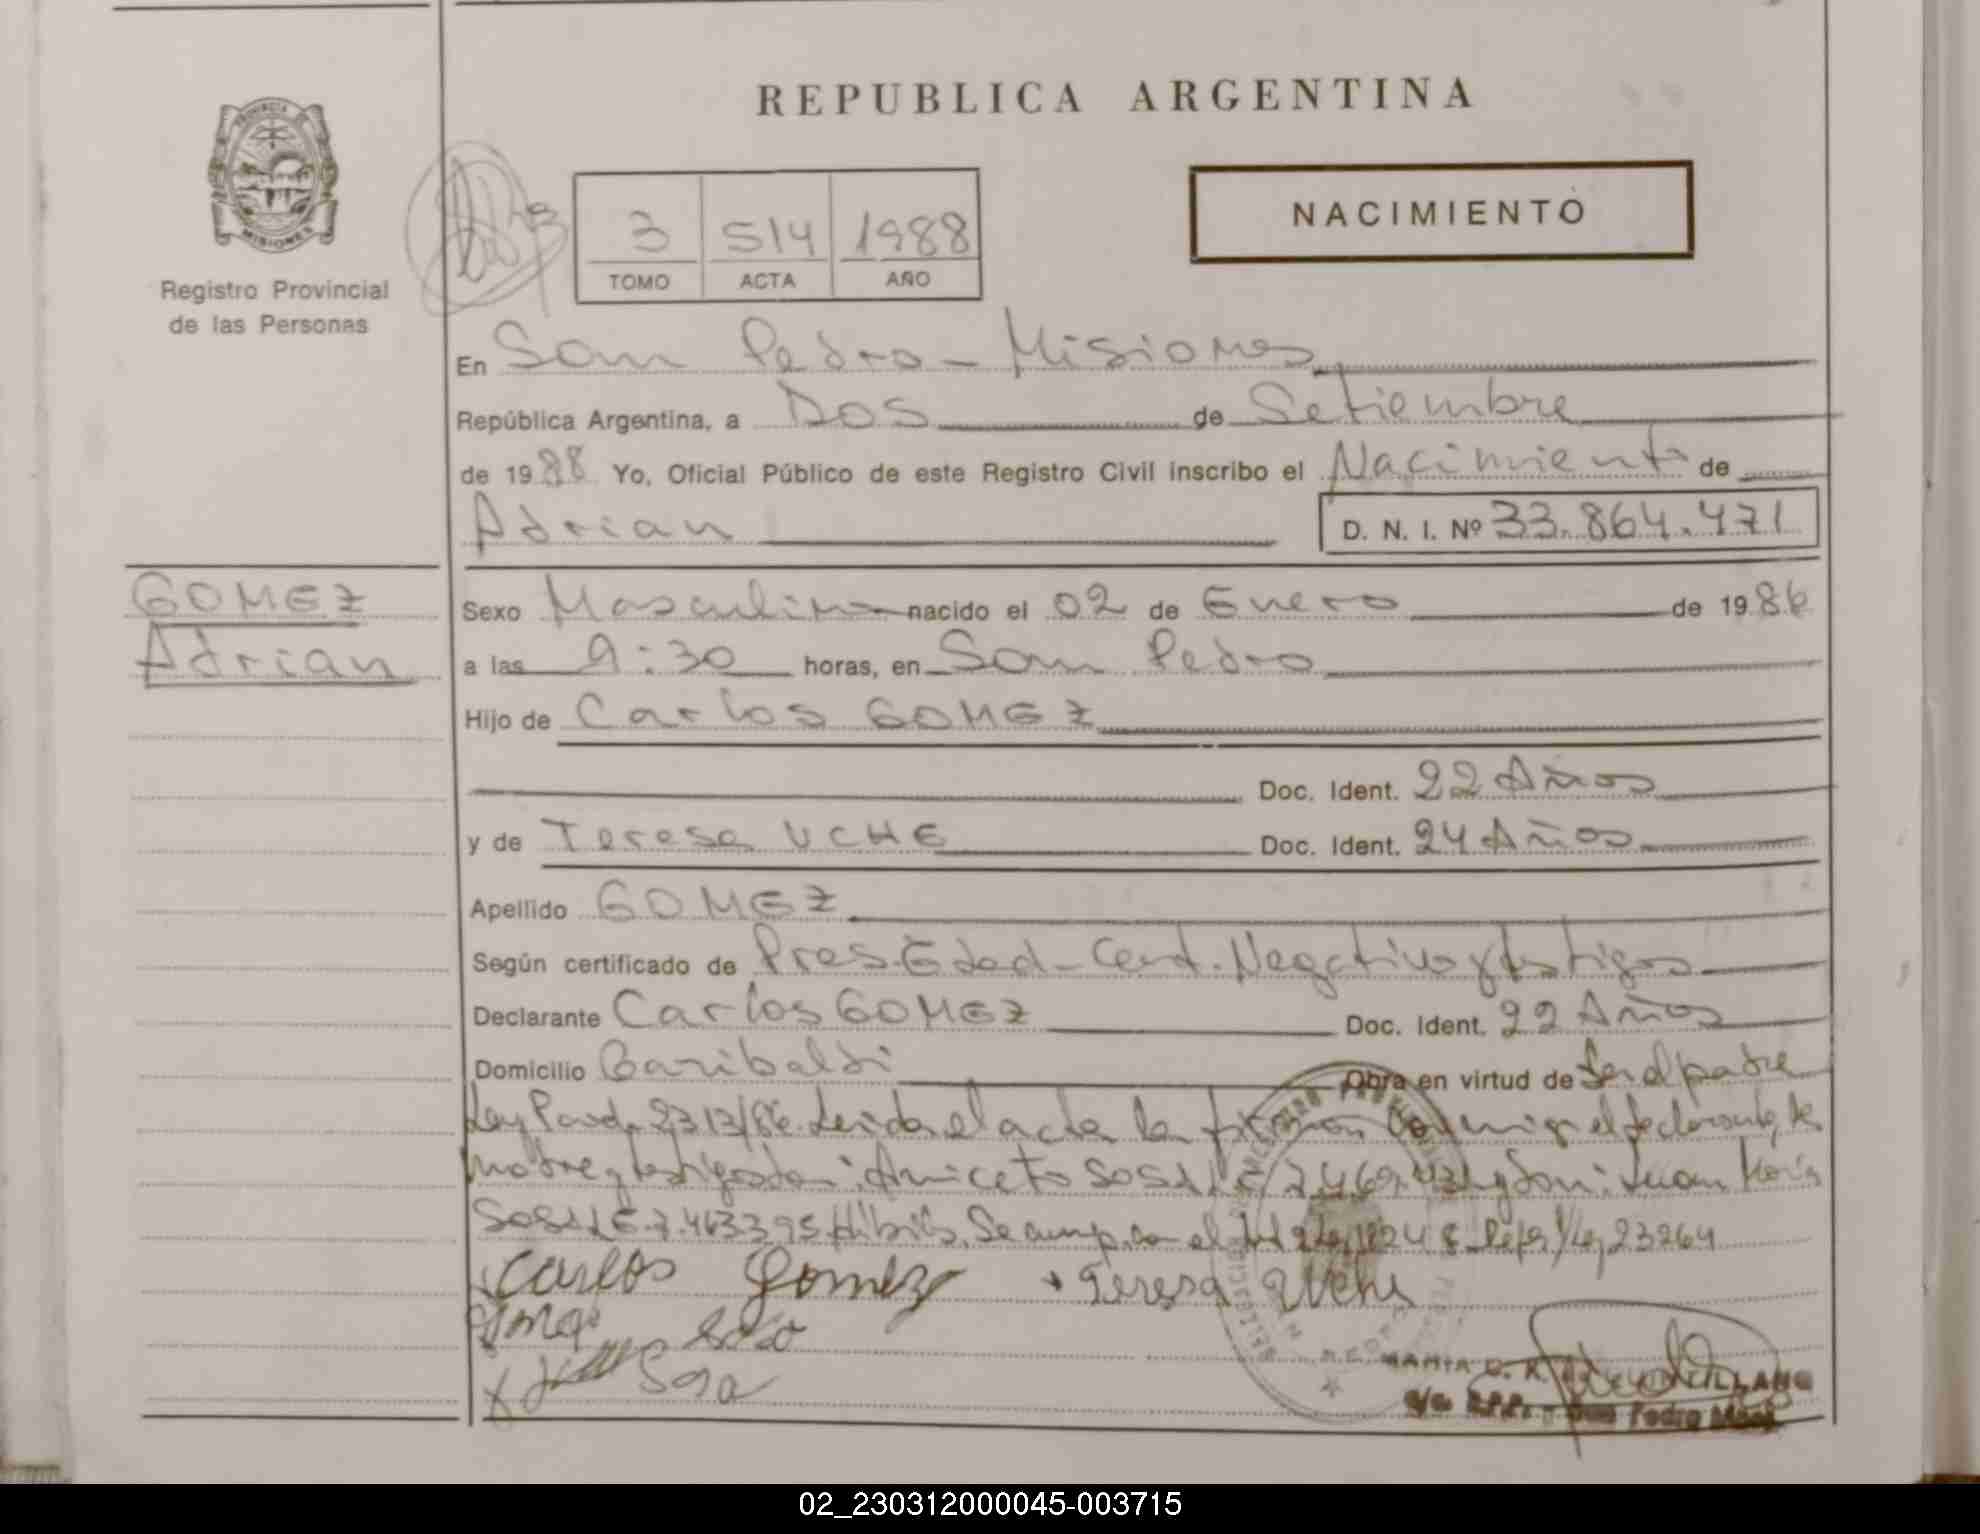 REPUBLICA ARGENTINA
PROVINCIA DE
MISIONES
Registro Provincial
de las Personas
3 514 1988
TOMO ACTA AÑO
NACIMIENTO
En San Pedro - Misiones
República Argentina, a Dos de Setiembre
de 1988 Yo, Oficial Público de este Registro Civil inscribo el Nacimiento de
Adrian D. N. I. Nº 33.864.471
GOMEZ
Adrian
Sexo Masculino nacido el 02 de Enero de 1986
a las 9:30 horas, en San Pedro
Hijo de Carlos GOMEZ
Doc. Ident. 22 Años
y de Teresa UCHE Doc. Ident. 24 Años
Apellido GOMEZ
Según certificado de Pres. Edad - Cert. Negativo y testigos
Declarante Carlos GOMEZ Doc. Ident. 22 Años
Domicilio Garibaldi Obra en virtud de Ser el padre
Ley 2313/86 Leida el acta la firman conmigo el declarante, la
madre y testigos don: Aniceto SOSA L E y Don: Juan
SOSA L E 7.463.395 Se cump. con el 23264
Carlos Gomez Teresa Uche
Sosa
Sosa
San Pedro
02_230312000045-003715